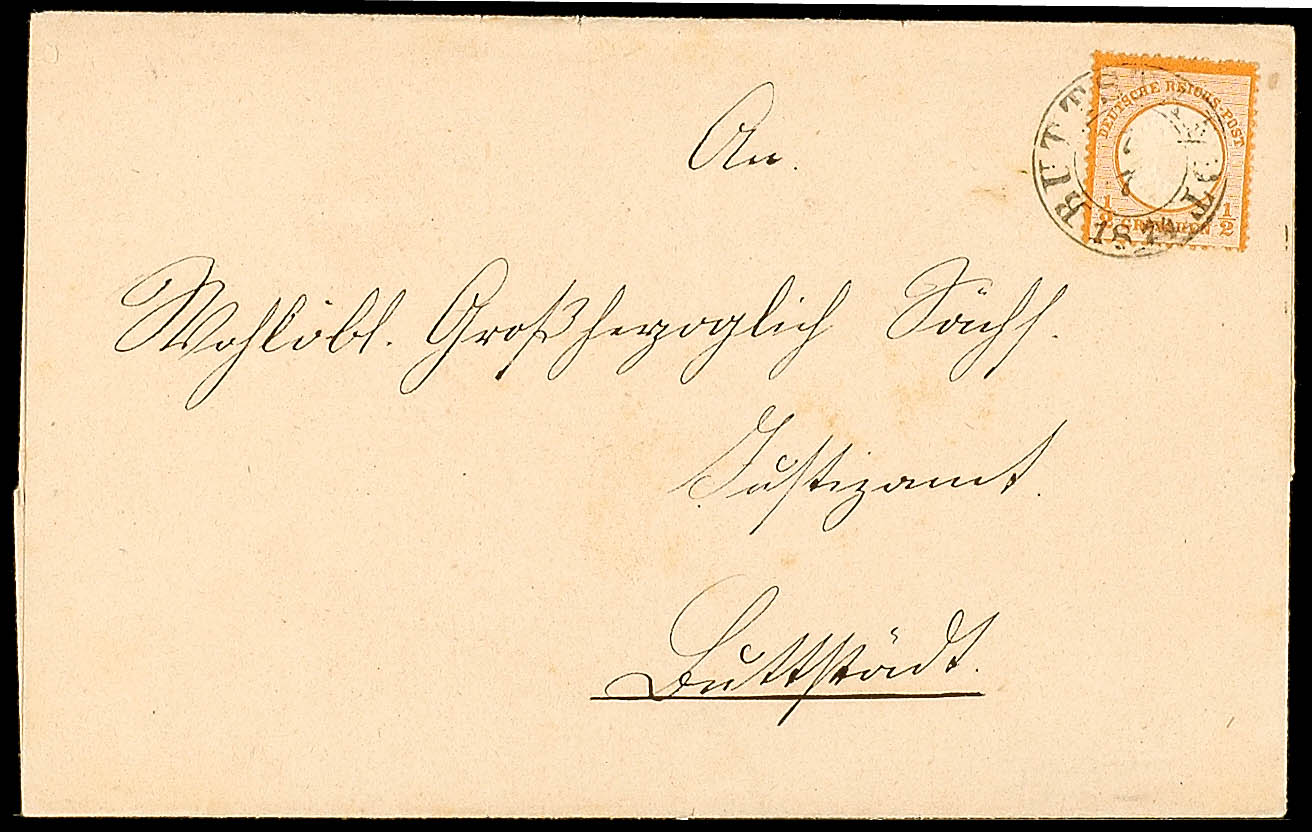 An.
DEUTSCHE REICHS-POST
1/2 GROSCHEN 1/2
1874
Wohllöbl. Großherzoglich Sächs.
Justizamt.
Buttstädt.